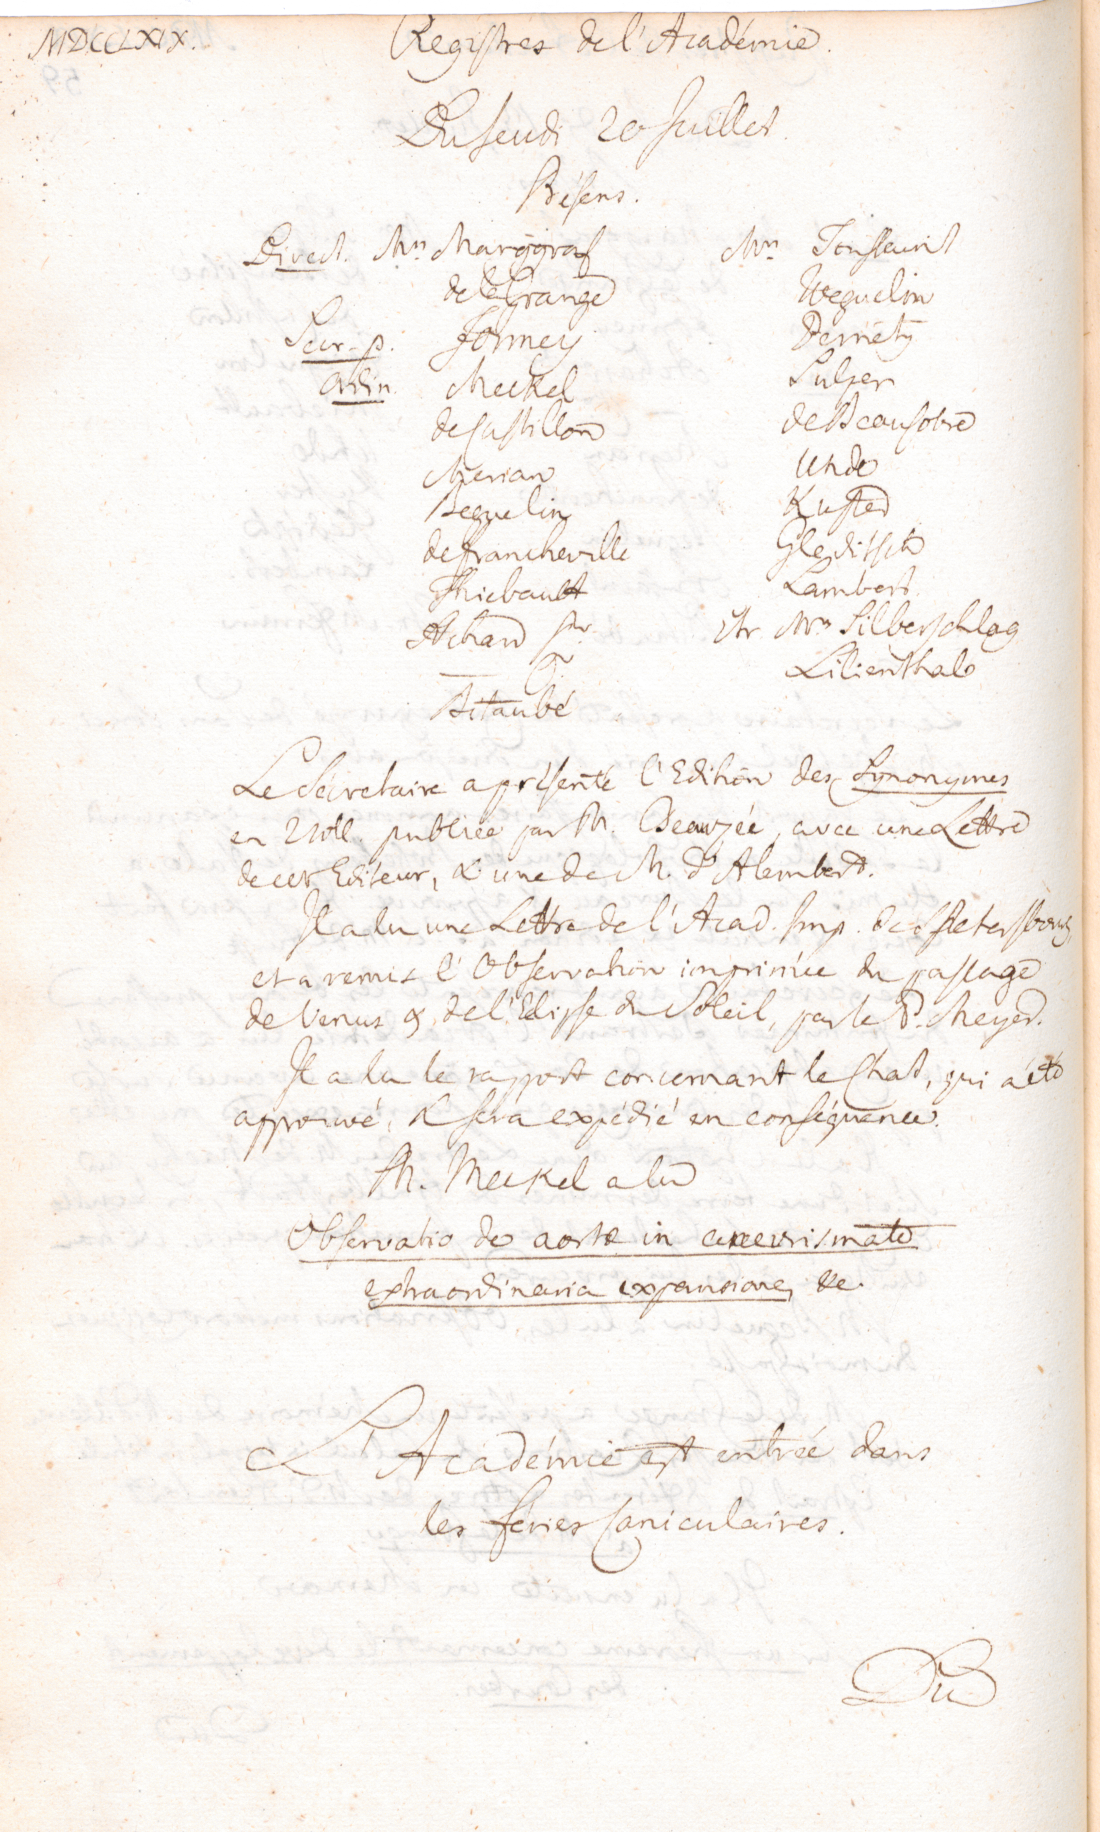 MDCCLXIX.
Registres de l'Académie.
Du Jeudi 20 Juillet.
Présens.
Direct. Mrs Marggraf
de la Grange
Secr. p. Formey
Ordin. Meckel
de Castillon
Merian
Beguelin
de Francheville
Thiebault
Achard
Bitaubé
Mrs Toussaint
Weguelin
Pernety
Sulzer
de Beausobre
Uhde
Kuster
Gleditsch
Lambert
Etr. Mrs Silberschlag
Lilienthal
Le Sécretaire a présenté l'Edition des Synonymes
en 2 Voll. publiée par M. Beauzée, avec une Lettre
de cet Editeur, & une de M. d'Alembert.
Il a lu une Lettre de l'Acad. Imp. de St Petersbourg,
et a remis l'Observation imprimée du passage
de Venus & de l'Eclipse du Soleil, par le P. Meyer.
Il a lu le rapport concernant le Chat, qui a été
approuvé, & sera expédié en conséquence.
M. Meckel a lu
Observatio de aortæ in aneurismate
extraordinaria expansione, &c.
L'Académie est entrée dans
les féries Caniculaires.
Du